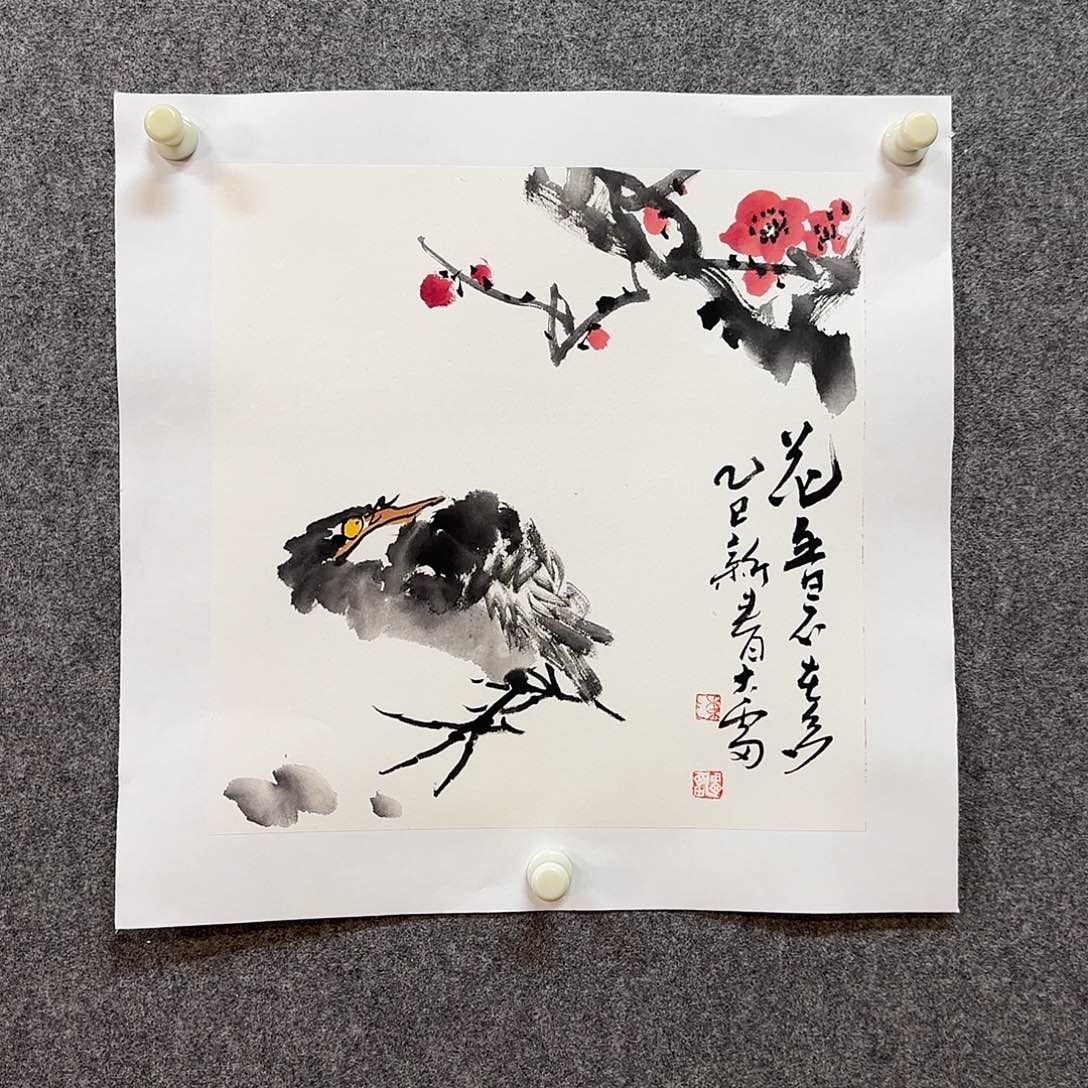 花香不在多
乙巳新春大雷